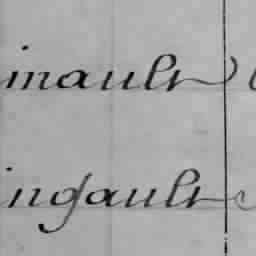 inault
ingault